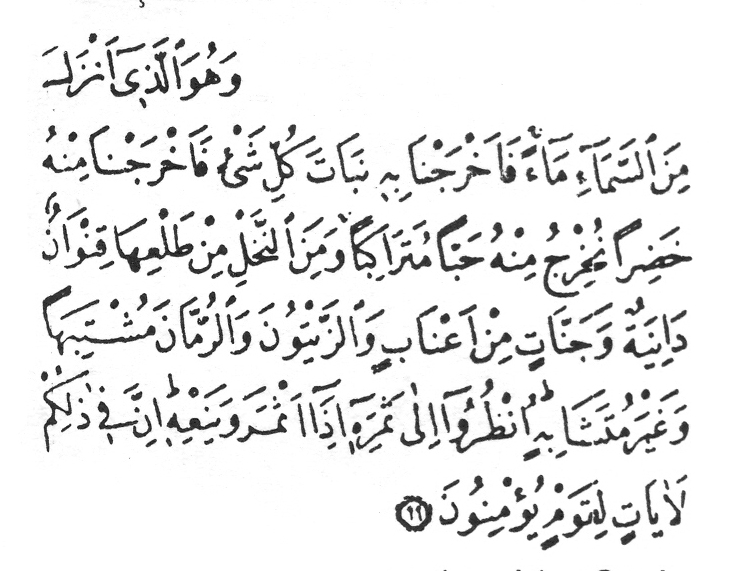 وَهُوَ ٱلَّذِىٓ أَنْزَلَ
مِنَ ٱلسَّمَآءِ مَآءً فَأَخْرَجْنَا بِهِۦ نَبَاتَ كُلِّ شَىْءٍ فَأَخْرَجْنَا مِنْهُ
خَضِرًا نُخْرِجُ مِنْهُ حَبًّا مُتَرَاكِبًا وَمِنَ ٱلنَّخْلِ مِنْ طَلْعِهَا قِنْوَانٌ
دَانِيَةٌ وَجَنَّاتٍ مِنْ أَعْنَابٍ وَٱلزَّيْتُونَ وَٱلرُّمَّانَ مُشْتَبِهًا
وَغَيْرَ مُتَشَابِهٍ ۗ ٱنْظُرُوٓا إِلَىٰ ثَمَرِهِۦٓ إِذَآ أَثْمَرَ وَيَنْعِهِۦٓ ۚ إِنَّ فِى ذَٰلِكُمْ
لَـَٔايَاتٍ لِقَوْمٍ يُؤْمِنُونَ ۝٩٩